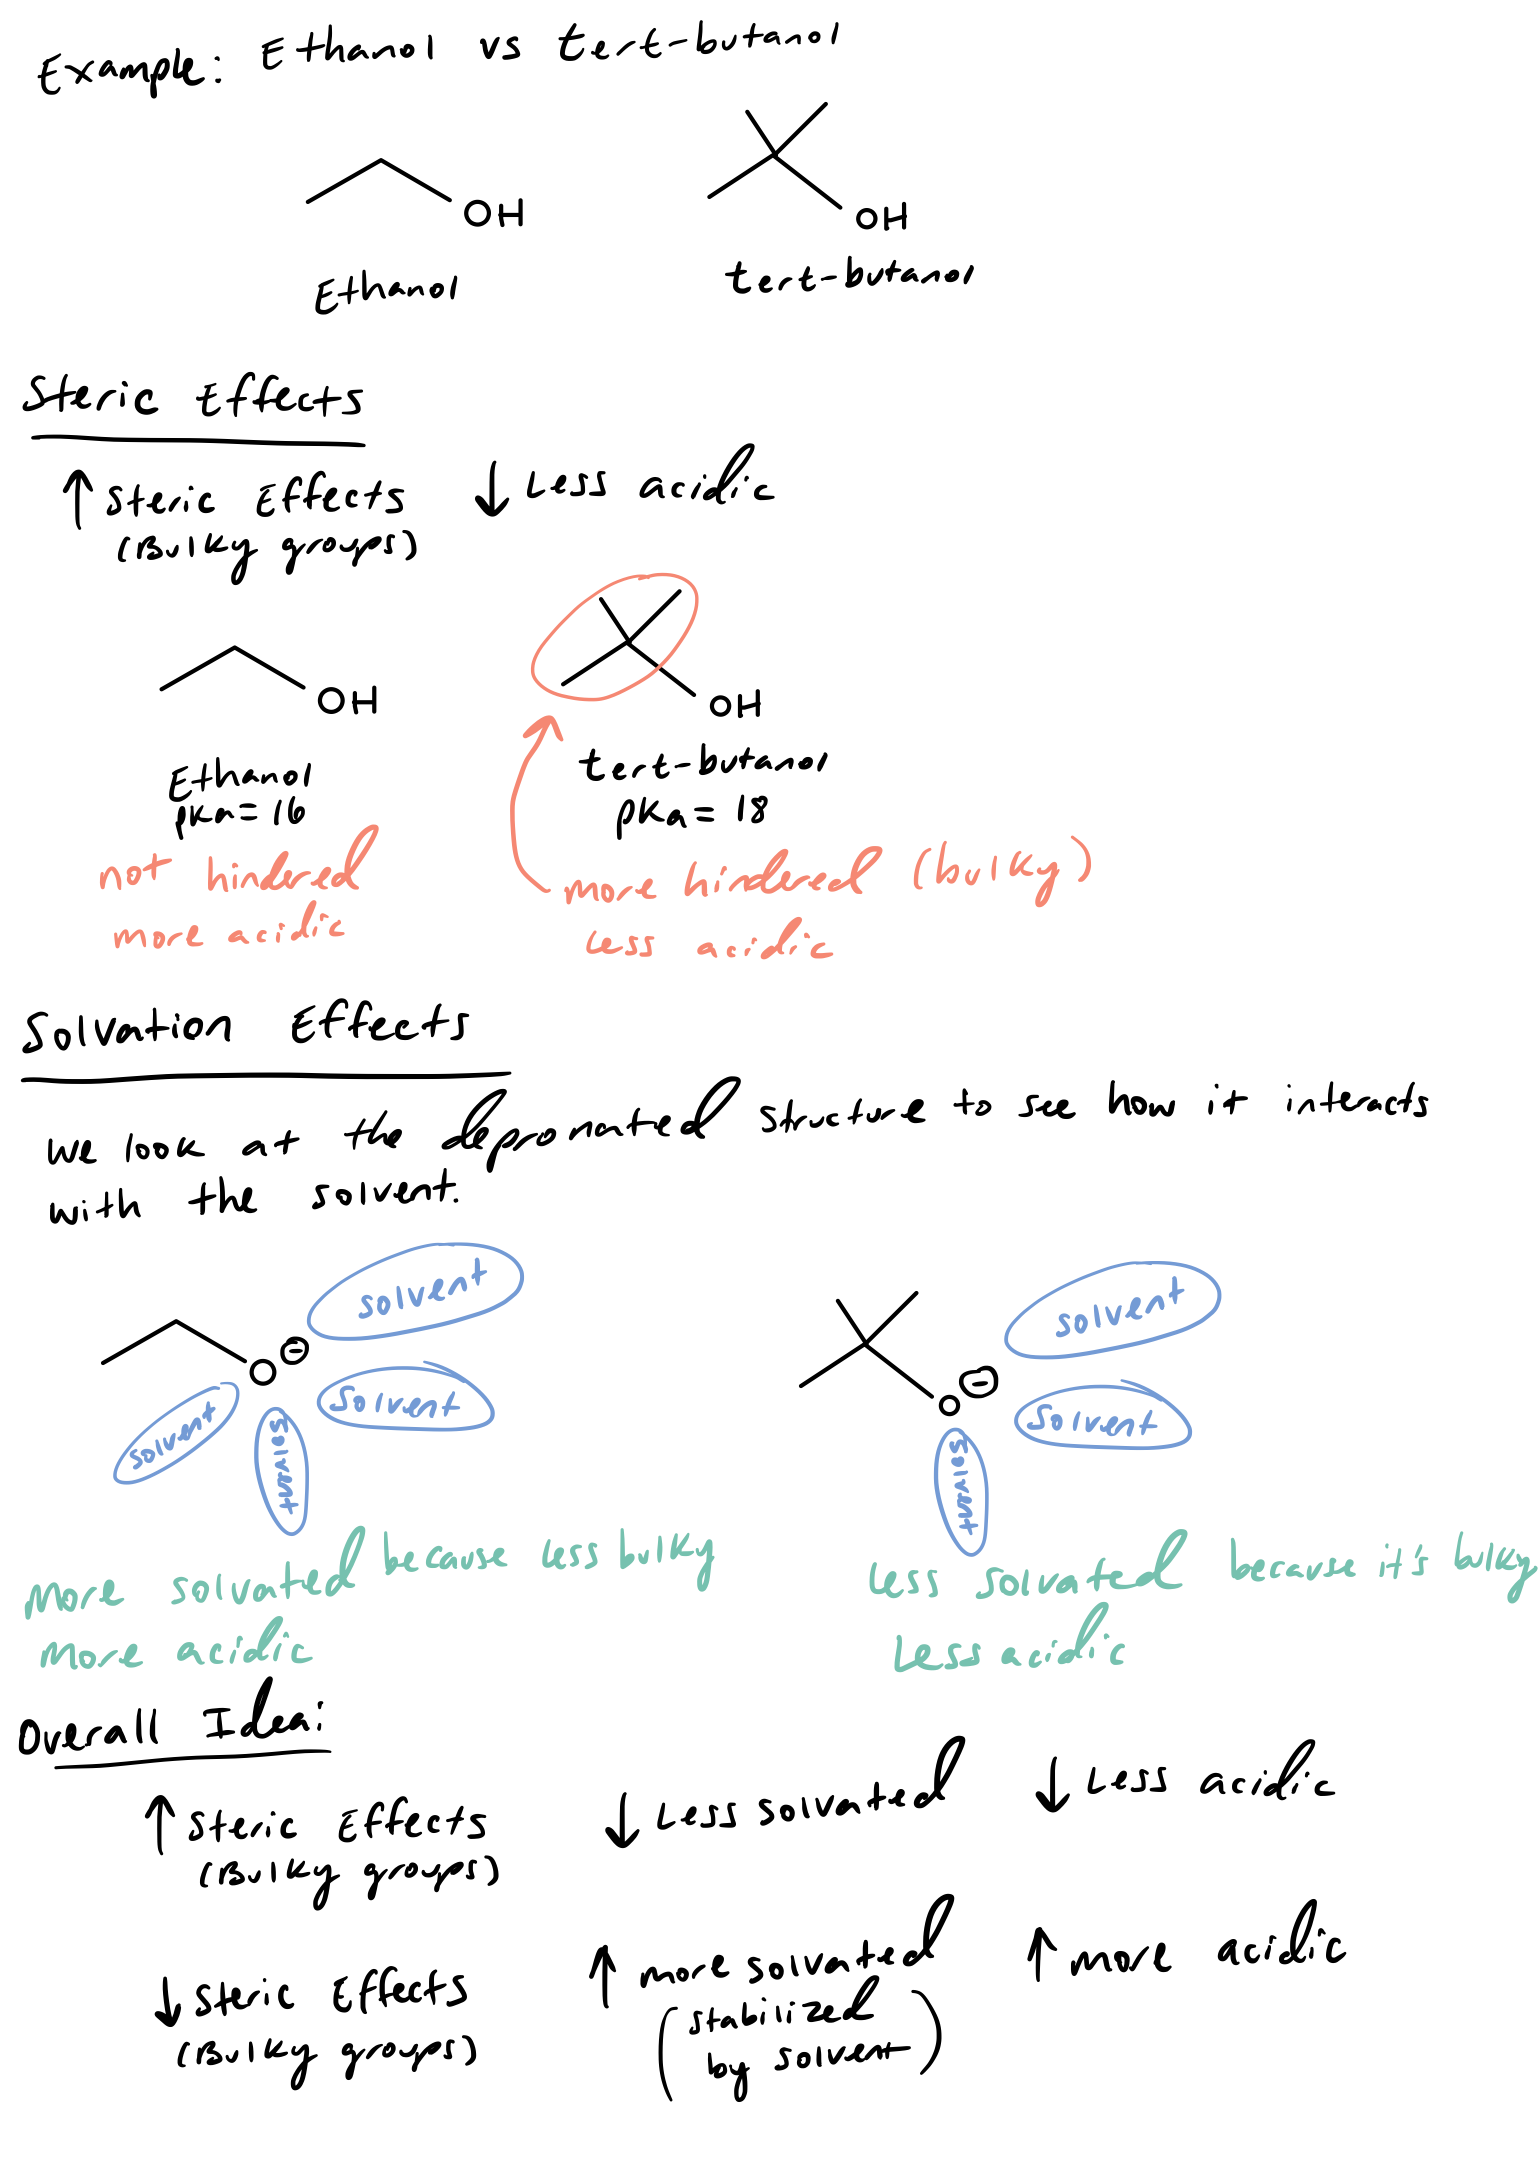 Example: Ethanol vs tert-butanol
OH
OH
Ethanol
tert-butanol
Steric Effects
↑ Steric Effects ↓ Less acidic
(Bulky groups)
OH
OH
Ethanol
tert-butanol
pKa = 16
pKa = 18
not hindered
more hindered (bulky)
more acidic
Less acidic
Solvation Effects
We look at the depronated structure to see how it interacts
with the solvent.
solvent
O ⊖
solvent
solvent
solvent
solvent
O ⊖
solvent
solvent
more solvated because less bulky
more acidic
Less solvated because it's bulky
Less acidic
Overall Idea:
↑ Steric Effects ↓ Less solvated ↓ Less acidic
(Bulky groups)
↓ Steric Effects ↑ more solvated ↑ more acidic
(Bulky groups)
(stabilized
by solvent)